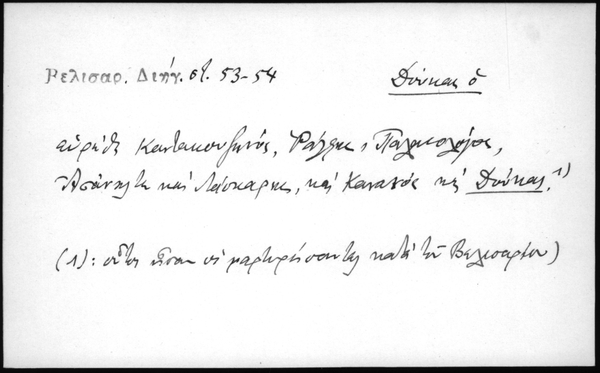 Βελισαρ. Διήγ. στ. 53-54
Δούκας ὁ
εὑρέθη Καντακουζηνός, Ράλλης, Παλαιολόγος,
Ἀσάνης τε καὶ Λάσκαρις, καὶ Κανανός καὶ Δούκας.¹)
(1): οὗτοι ἦσαν οἱ μαρτυρήσαντες κατὰ τοῦ Βελισαρίου)